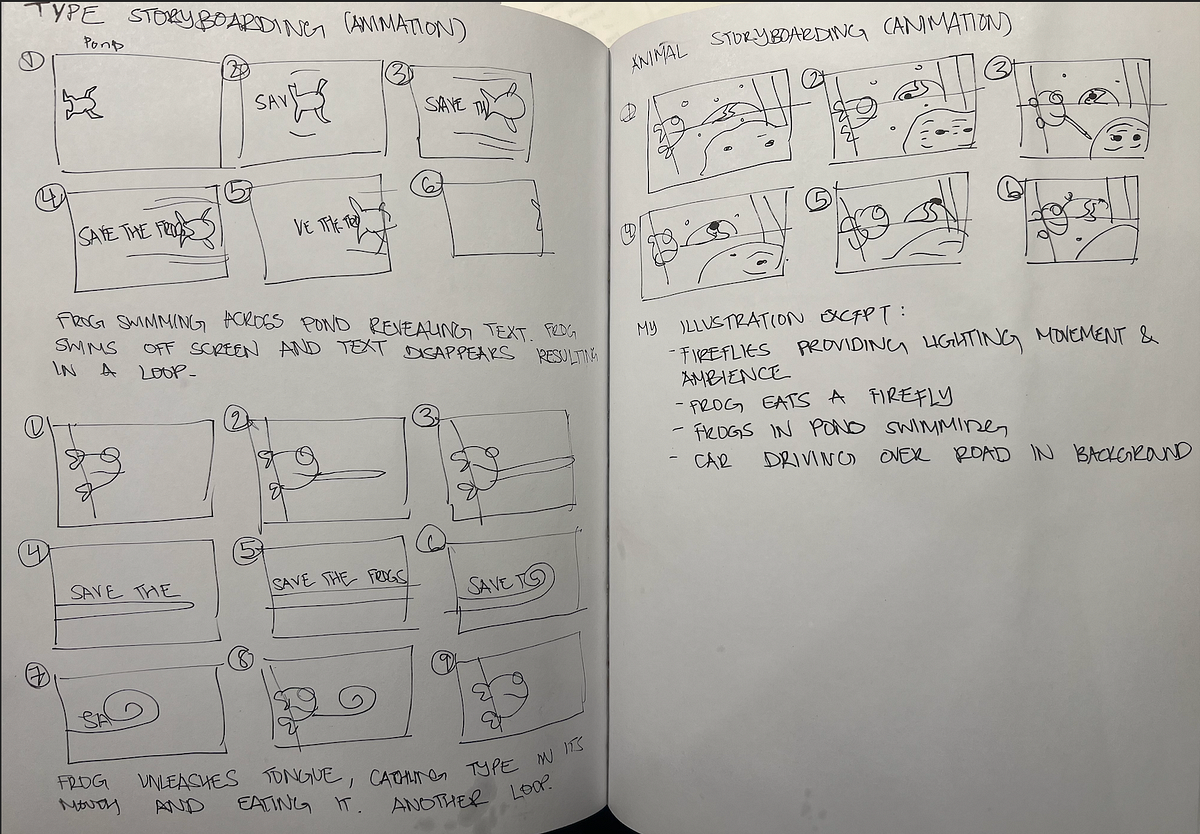 TYPE STORYBOARDING (ANIMATION)
POND
1
2
SAV
3
SAVE TH
4
SAVE THE FROGS
5
VE THE FRO
6
FROG SWIMMING ACROSS POND REVEALING TEXT. FROG
SWIMS OFF SCREEN AND TEXT DISAPPEARS RESULTING
IN A LOOP.
1
2
3
4
SAVE THE
5
SAVE THE FROGS
6
SAVE T
7
SA
8
9
FROG UNLEASHES TONGUE, CATCHING TYPE IN ITS
MOUTH AND EATING IT. ANOTHER LOOP.
ANIMAL STORYBOARDING (ANIMATION)
1
2
3
4
5
6
MY ILLUSTRATION EXCEPT:
- FIREFLIES PROVIDING LIGHTING MOVEMENT &
AMBIENCE
- FROG EATS A FIREFLY
- FROGS IN POND SWIMMING
- CAR DRIVING OVER ROAD IN BACKGROUND